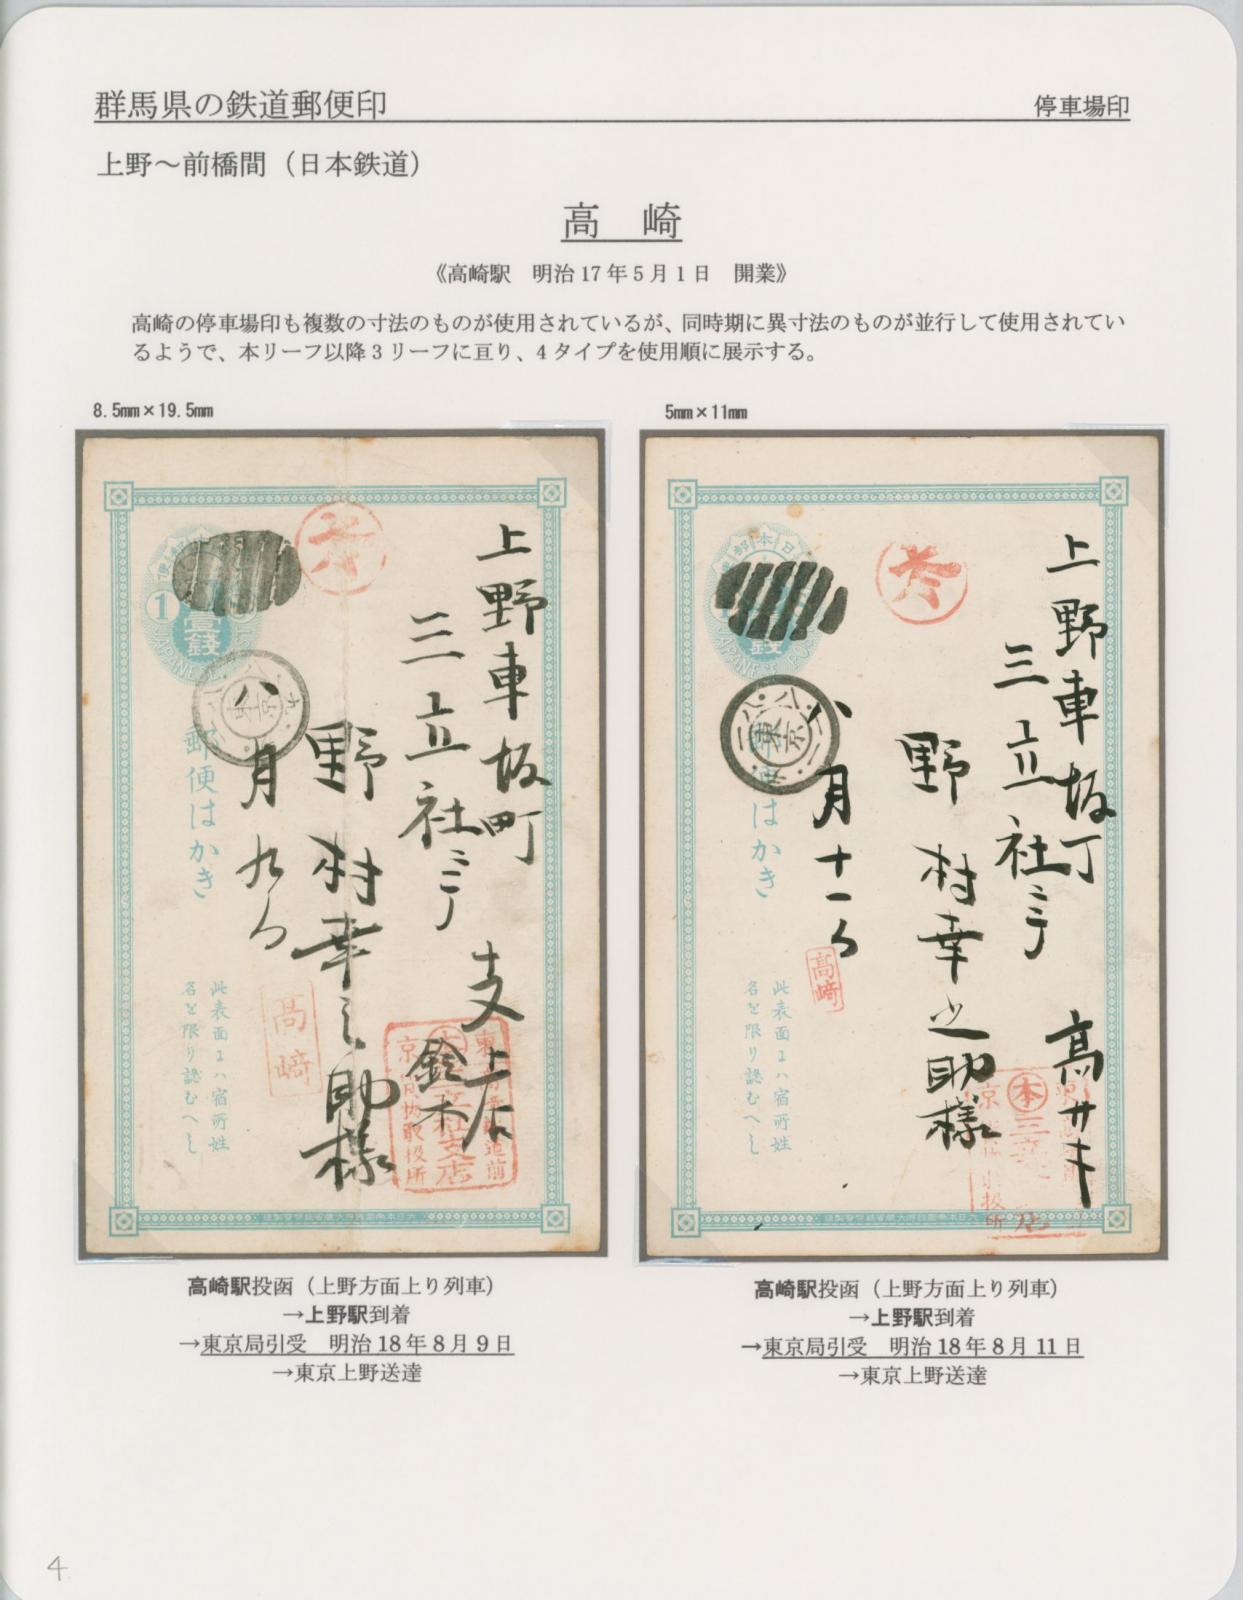 群馬県の鉄道郵便印
停車場印
上野～前橋間（日本鉄道）
高　崎
《高崎駅　明治17年5月1日　開業》
高崎の停車場印も複数の寸法のものが使用されているが、同時期に異寸法のものが並行して使用されてい
るようで、本リーフ以降3リーフに亘り、4タイプを使用順に展示する。
8.5mm×19.5mm
上野車坂町
三立社ニテ
野村幸之助様
八月九日
支店
鈴木
1
壹銭
郵便はかき
此表面ニハ宿所姓
名を限り認むへし
高崎
5mm×11mm
上野車坂丁
三立社ニテ
野村幸之助様
八月十一日
高サキ
東京
はかき
此表面ニハ宿所姓
名を限り認むへし
高崎
高崎駅投函（上野方面上り列車）
→上野駅到着
→東京局引受　明治18年8月9日
→東京上野送達
高崎駅投函（上野方面上り列車）
→上野駅到着
→東京局引受　明治18年8月11日
→東京上野送達
4